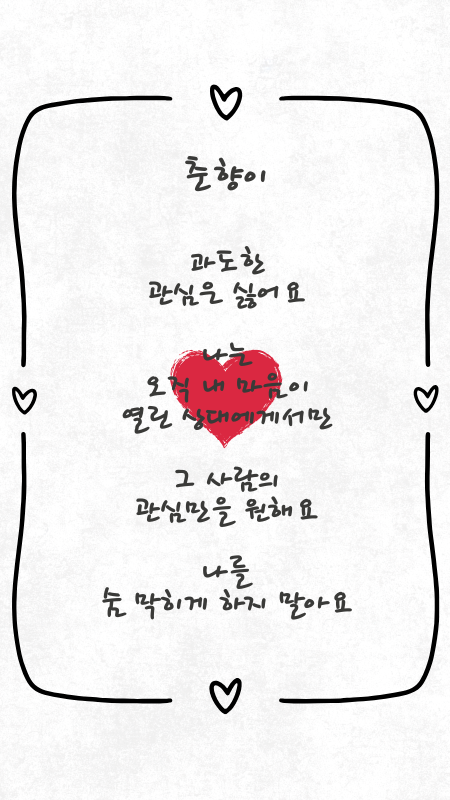 춘향이
과도한
관심은 싫어요
나는
오직 내 마음이
열린 상대에게서만
그 사람의
관심만을 원해요
나를
숨 막히게 하지 말아요